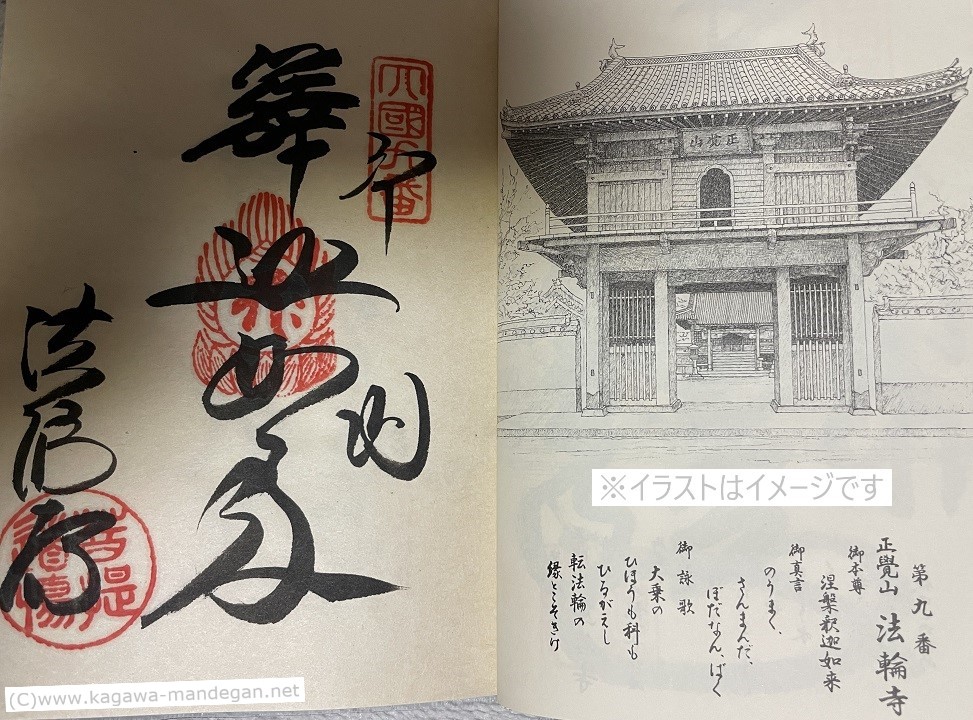 奉納
法輪寺
正覺山
※イラストはイメージです
第九番
正覺山 法輪寺
御本尊
涅槃釈迦如来
御真言
のうまく、
さんまんだ、
ぼだなん、ばく
御詠歌
大乗の
ひほうも科も
ひるがえし
転法輪の
縁とこそきけ
(C)www.kagawa-mandegan.net